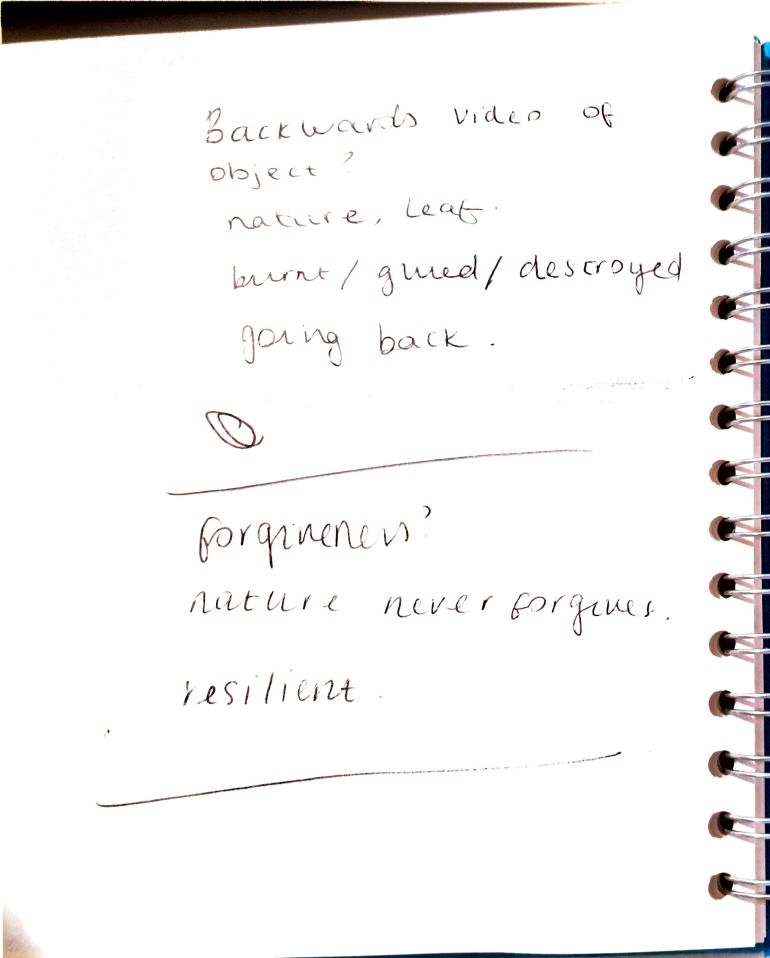 Backwards video of
object?
nature, leaf.
burnt / glued / destroyed
going back.
forgiveness?
nature never forgives.
resilient.